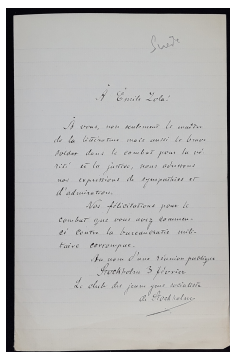 Suède
À Emile Zola!
À vous, non seulement le maître
de la littérature mais aussi le brave
soldat dans le combat pour la vé-
rité et la justice, nous adressons
nos expressions de sympathie et
d'admiration.
Nos félicitations pour le
combat que vous avez commen-
cé contre la bureaucratie mili-
taire corrompue.
Au nom d'une réunion publique
Stockholm 3 février
Le club des jeunes gens socialistes
de Stockholm